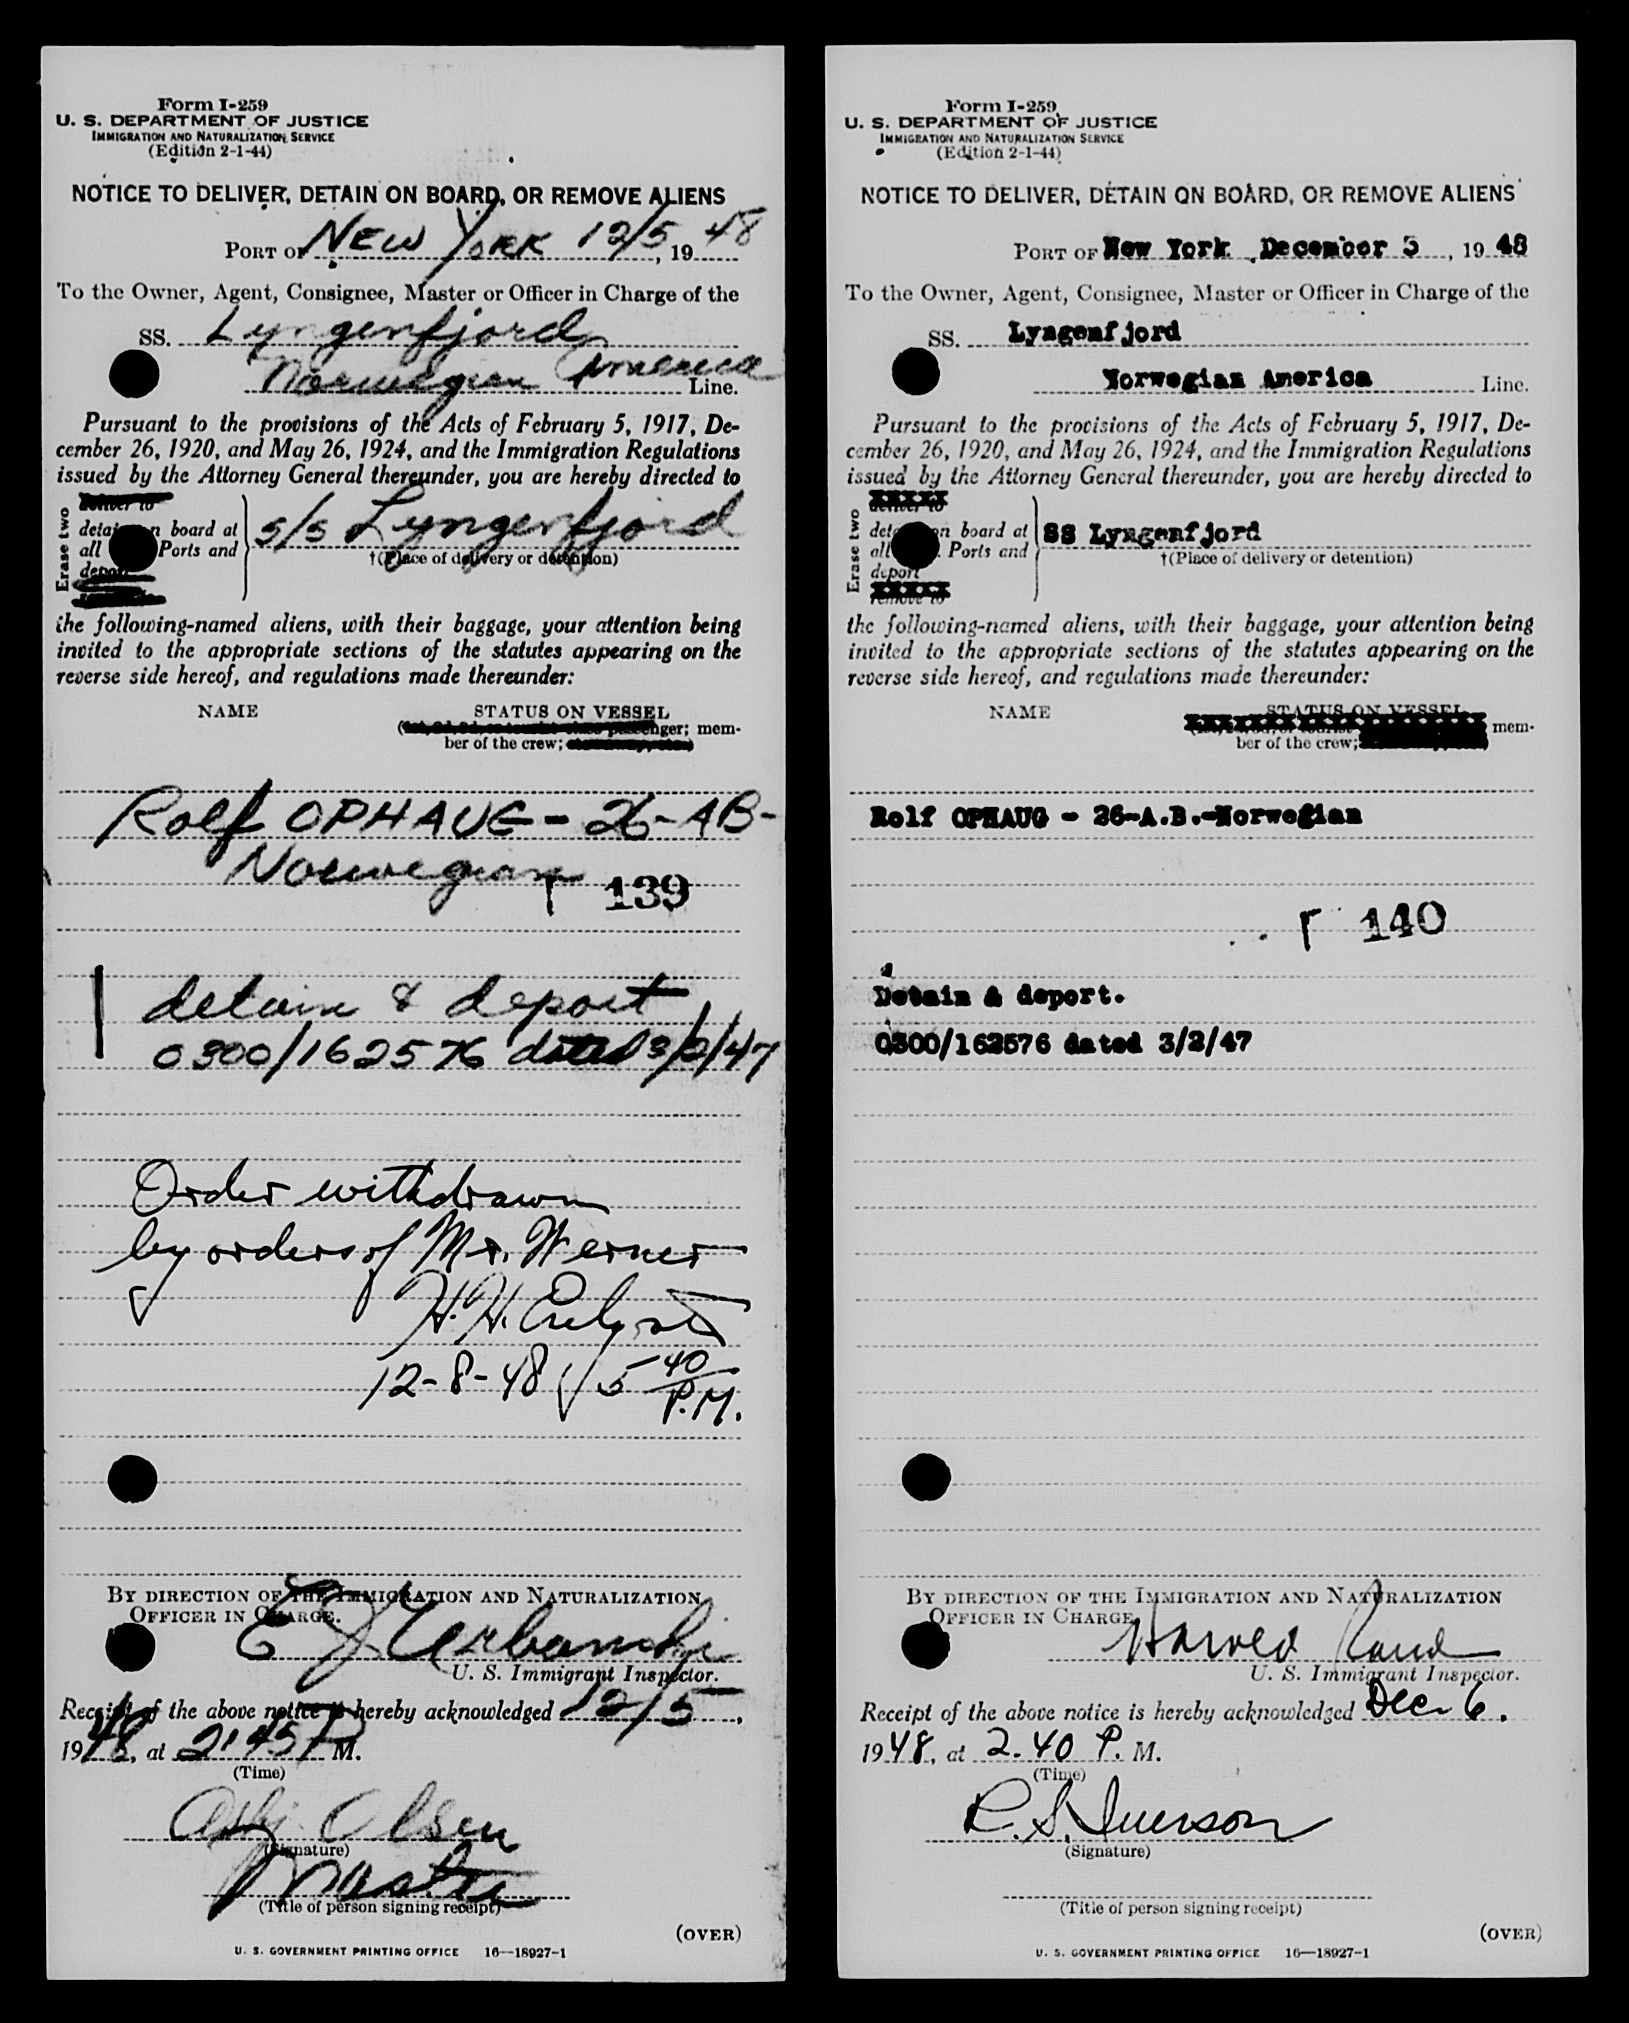 Form I-259
U. S. DEPARTMENT OF JUSTICE
IMMIGRATION AND NATURALIZATION SERVICE
(Edition 2-1-44)
NOTICE TO DELIVER, DETAIN ON BOARD, OR REMOVE ALIENS
PORT OF NEW YORK 12/5, 19 48
To the Owner, Agent, Consignee, Master or Officer in Charge of the
SS. Lyngenfjord
Norwegian America Line.
Pursuant to the provisions of the Acts of February 5, 1917, De-
cember 26, 1920, and May 26, 1924, and the Immigration Regulations
issued by the Attorney General thereunder, you are hereby directed to
Erase two
deliver to
detain on board at
all Ports and
deport
s/s Lyngenfjord
†(Place of delivery or detention)
the following-named aliens, with their baggage, your attention being
invited to the appropriate sections of the statutes appearing on the
reverse side hereof, and regulations made thereunder:
NAME STATUS ON VESSEL
(1st, 2d, 3d, or tourist class passenger; mem-
ber of the crew;
Rolf OPHAUG - 26 - AB -
Norwegian
139
detain & deport
0300/162576 dated 3/2/47
Order withdrawn
by orders of Mr. Werner
H.H.
12-8-48 5 40
P.M.
BY DIRECTION OF THE IMMIGRATION AND NATURALIZATION
OFFICER IN CHARGE.
U. S. Immigrant Inspector.
Receipt of the above notice is hereby acknowledged 12/5,
19 48, at 2:45 P M.
(Time)
Olsen
(Signature)
Master
(Title of person signing receipt)
(OVER)
U. S. GOVERNMENT PRINTING OFFICE 16—18927-1
Form I-259
U. S. DEPARTMENT OF JUSTICE
IMMIGRATION AND NATURALIZATION SERVICE
(Edition 2-1-44)
NOTICE TO DELIVER, DETAIN ON BOARD, OR REMOVE ALIENS
PORT OF New York, December 5, 19 48
To the Owner, Agent, Consignee, Master or Officer in Charge of the
SS. Lyngenfjord
Norwegian America Line.
Pursuant to the provisions of the Acts of February 5, 1917, De-
cember 26, 1920, and May 26, 1924, and the Immigration Regulations
issued by the Attorney General thereunder, you are hereby directed to
Erase two
xxxxx
deliver to
detain on board at
all Ports and
deport
xxxxx
remove to
SS Lyngenfjord
†(Place of delivery or detention)
the following-named aliens, with their baggage, your attention being
invited to the appropriate sections of the statutes appearing on the
reverse side hereof, and regulations made thereunder:
NAME STATUS ON VESSEL
mem-
ber of the crew;
Rolf OPHAUG - 26-A.B.-Norwegian
140
Detain & deport.
0300/162576 dated 3/2/47
BY DIRECTION OF THE IMMIGRATION AND NATURALIZATION
OFFICER IN CHARGE
Harold Rand
U. S. Immigrant Inspector.
Receipt of the above notice is hereby acknowledged Dec 6,
19 48, at 2.40 P. M.
(Time)
R. S. Iverson
(Signature)
(Title of person signing receipt)
(OVER)
U. S. GOVERNMENT PRINTING OFFICE 16—18927-1